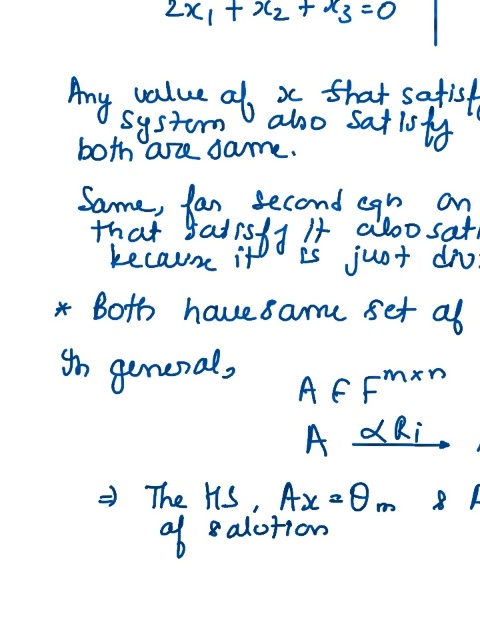 2x₁ + x₂ + x₃ = 0
Any value of x that satisf
system also satisfy
both are same.
Same, for second eqn on
that satisfy it also sat
because it is just div
* Both have same set of
In general,
A ∈ F^{m×n}
A \xrightarrow{αRi}
⇒ The HS, Ax = θₘ & A
of solution